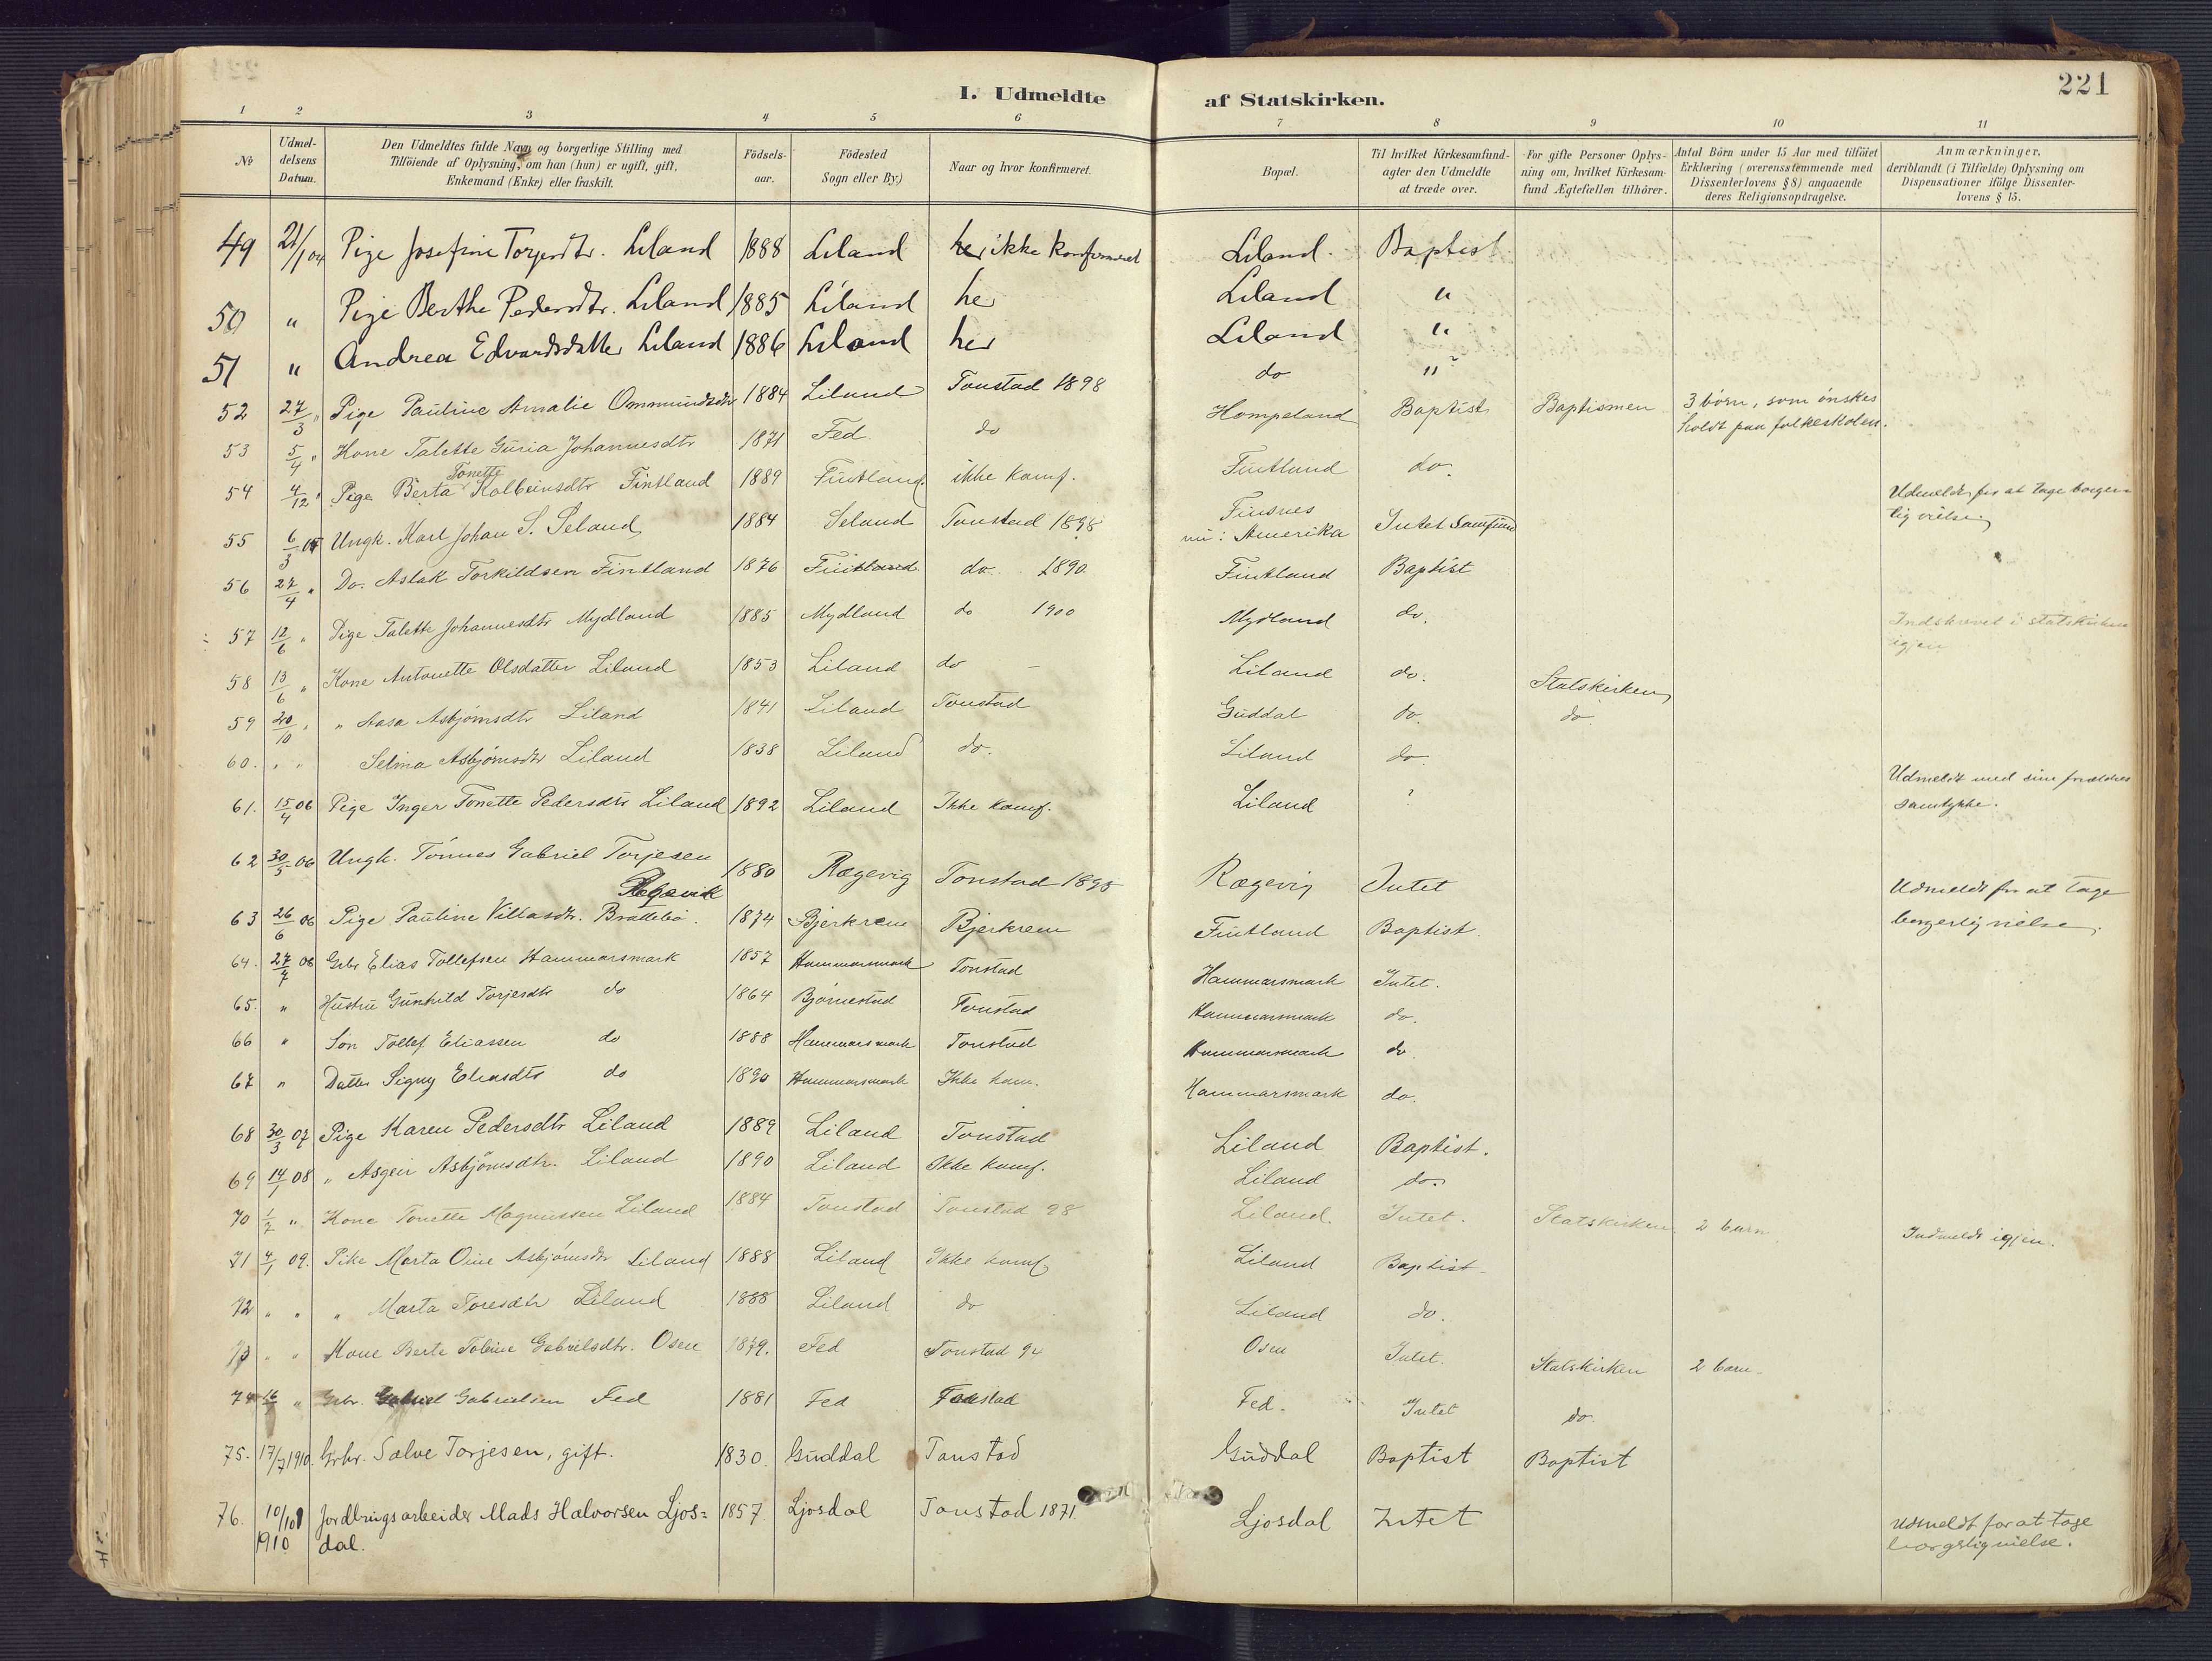 221
I. Udmeldte af Statskirken.
1 2 3 4 5 6 7 8 9 10 11
No
Udmel-
delsens
Datum.
Den Udmeldtes fulde Navn og borgerlige Stilling med
Tilføiende af Oplysning, om han (hun) er ugift, gift,
Enkemand (Enke) eller fraskilt.
Fødsels-
aar.
Fødested
Sogn eller By.)
Naar og hvor konfirmeret.
Bopæl.
Til hvilket Kirkesamfund-
agter den Udmeldte
at træde over.
For gifte Personer Oplys-
ning om, hvilket Kirkesam-
fund Ægtefællen tilhører.
Antal Børn under 15 Aar med tilføiet
Erklæring (overensstemmende med
Dissenterlovens § 8) angaaende
deres Religionsopdragelse.
Anmærkninger,
deriblandt (i Tilfælde) Oplysning om
Dispensationer ifølge Dissenter-
lovens § 15.
49 21/1 04 Pige Josefine Torjersdtr. Liland 1888 Liland ikke konfirmeret Liland. Baptist
50 " Pige Berthe Pedersdtr. Liland 1885 Liland her Liland "
51 " Andrea Edvardsdatter Liland 1886 Liland her Liland "
52 27/3 " Pige Pauline Amalie Ommundsdtr 1884 Liland Tonstad 1898 do "
53 5/4 " Kone Talette Guria Johannesdtr 1871 Fed. do Hompeland Baptist Baptismen 3 børn, som ønskes
holdt paa folkeskolen.
54 4/12 " Pige Berta Tonette Kolbeinsdtr Fintland 1889 Fintland. ikke konf. Fintland do.
55 6/3 05 Ungk. Karl Johan S. Seland 1884 Seland Tonstad 1898 Finsnes
nu i Amerika Intet Samfund Udmeldt for at tage borger-
lig vielse
56 27/4 " Do. Aslak Torkildsen Fintland 1876 Fintland do 1890 Fintland Baptist
57 12/6 " Pige Talette Johannesdtr Mydland 1885 Mydland do 1900 Mydland do. Indskrevet i statskirken
igjen
58 13/6 " Kone Antonette Olsdatter Liland 1853 Liland do - Liland do. Statskirken
59 20/10 " " Aasa Asbjørnsdtr Liland 1841 Liland Tonstad Guddal do. do.
60. " " Selma Asbjørnsdtr Liland 1838 Liland do. Liland do.
61. 15/4 06 Pige Inger Tonette Pedersdtr Liland 1892 Liland Ikke konf. Liland ? Udmeldt med sine forældres
samtykke.
62 30/5 06 Ungk. Tønnes Gabriel Torjesen
Regevik 1880 Rægevig Tonstad 1895 Rægevig Intet Udmeldt for at tage
borgerlig vielse.
63 26/6 06 Pige Pauline Villasdtr. Brattebø. 1874 Bjerkrem Bjerkrem Fintland Baptist.
64. 27/7 06 Grbr Elias Tollefsen Hammarsmark 1857 Hammarsmark Tonstad Hammarsmark Intet.
65. " Hustru Gunhild Torjersdtr do 1864 Bjørnestad Tonstad Hammarsmark do.
66 " Søn Tollef Eliassen do 1888 Hammarsmark Tonstad Hammarsmark do.
67 " Datter Signy Eliasdtr do 1890 Hammarsmark Ikke kon. Hammarsmark do.
68 30/3 07 Pige Karen Pedersdtr Liland 1889 Liland Tonstad Liland Baptist.
69 14/1 08 " Asgeir Asbjørnsdtr. Liland 1890 Liland Ikke konf. Liland do.
70 1/7 " Kone Tonette Magnussen Liland 1884 Tonstad Tonstad 98 Liland. Intet. Statskirken 2 barn Indmeldt igjen.
71 4/1 09. Pike Marta Oine Asbjørnsdtr Liland 1888 Liland Ikke konf. Liland Baptist
72 " " " Marta Toresdtr Liland 1888 Liland do Liland do.
73 " " Kone Berte Tobine Gabrielsdtr. Osen 1879. Fed Tonstad 94 Osen Intet. Statskirken 2 barn.
74 " Grbr. Gabriel Gabrielsen Fed 1881 Fed Tonstad Fed. Intet do.
75. 17/7 1910. Grbr. Salve Torjesen, gift. 1830. Guddal Tonstad Guddal Baptist Baptist
76. 10/10 1910 Jordbrugsarbeider Mads Halvorsen Ljos=
dal. 1857. Ljosdal Tonstad 1871. Ljosdal Intet Udmeldt for at tage
borgerlig vielse.